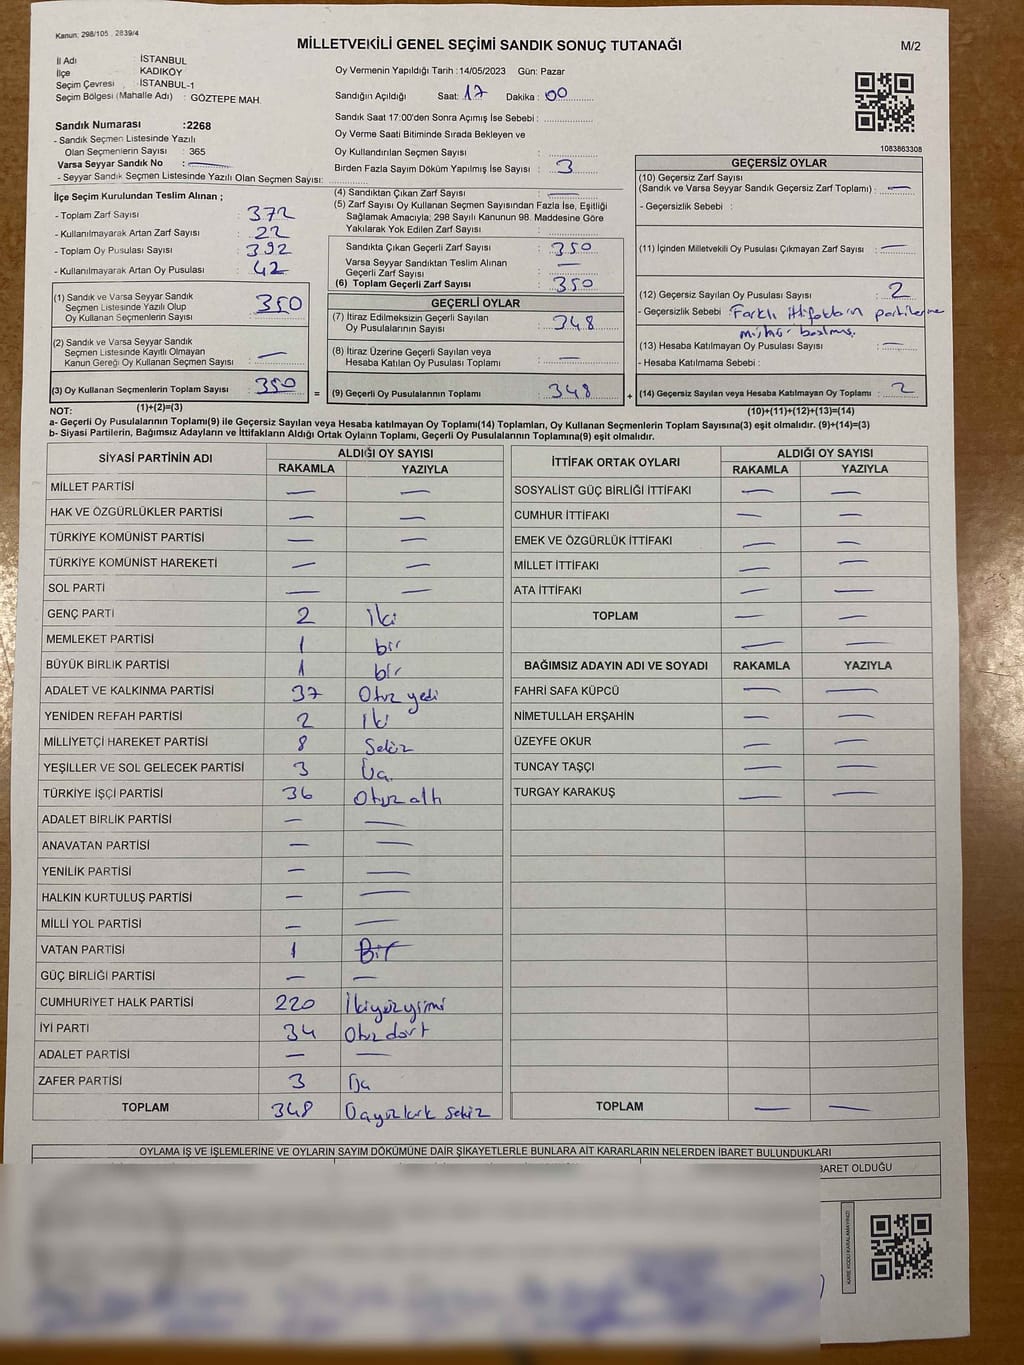 Kanun: 298/105 , 2839/4
MİLLETVEKİLİ GENEL SEÇİMİ SANDIK SONUÇ TUTANAĞI
M/2
İl Adı : İSTANBUL
İlçe : KADIKÖY
Seçim Çevresi : İSTANBUL-1
Seçim Bölgesi (Mahalle Adı) : GÖZTEPE MAH.
Oy Vermenin Yapıldığı Tarih :14/05/2023 Gün: Pazar
Sandığın Açıldığı Saat: 17 Dakika : 00
Sandık Saat 17:00'den Sonra Açımış İse Sebebi :
Oy Verme Saati Bitiminde Sırada Bekleyen ve
Oy Kullandırılan Seçmen Sayısı :
Birden Fazla Sayım Döküm Yapılmış İse Sayısı : 3
1083863308
Sandık Numarası :2268
- Sandık Seçmen Listesinde Yazılı
Olan Seçmenlerin Sayısı : 365
Varsa Seyyar Sandık No : —
- Seyyar Sandık Seçmen Listesinde Yazılı Olan Seçmen Sayısı:
İlçe Seçim Kurulundan Teslim Alınan ;
- Toplam Zarf Sayısı : 372
- Kullanılmayarak Artan Zarf Sayısı : 22
- Toplam Oy Pusulası Sayısı : 392
- Kullanılmayarak Artan Oy Pusulası : 42
(1) Sandık ve Varsa Seyyar Sandık
Seçmen Listesinde Yazılı Olup
Oy Kullanan Seçmenlerin Sayısı : 350
(2) Sandık ve Varsa Seyyar Sandık
Seçmen Listesinde Kayıtlı Olmayan
Kanun Gereği Oy Kullanan Seçmen Sayısı : —
(3) Oy Kullanan Seçmenlerin Toplam Sayısı : 350 =
(1)+(2)=(3)
(4) Sandıktan Çıkan Zarf Sayısı : —
(5) Zarf Sayısı Oy Kullanan Seçmen Sayısından Fazla İse, Eşitliği
Sağlamak Amacıyla; 298 Sayılı Kanunun 98. Maddesine Göre
Yakılarak Yok Edilen Zarf Sayısı :
Sandıkta Çıkan Geçerli Zarf Sayısı : 350
Varsa Seyyar Sandıktan Teslim Alınan
Geçerli Zarf Sayısı : —
(6) Toplam Geçerli Zarf Sayısı : 350
GEÇERLİ OYLAR
(7) İtiraz Edilmeksizin Geçerli Sayılan
Oy Pusulalarının Sayısı : 348
(8) İtiraz Üzerine Geçerli Sayılan veya
Hesaba Katılan Oy Pusulası Toplamı : —
(9) Geçerli Oy Pusulalarının Toplamı : 348 +
GEÇERSİZ OYLAR
(10) Geçersiz Zarf Sayısı
(Sandık ve Varsa Seyyar Sandık Geçersiz Zarf Toplamı) : —
- Geçersizlik Sebebi :
(11) İçinden Milletvekili Oy Pusulası Çıkmayan Zarf Sayısı : —
(12) Geçersiz Sayılan Oy Pusulası Sayısı : 2
- Geçersizlik Sebebi : Farklı ittifakların partilerine
mühür basılmış.
(13) Hesaba Katılmayan Oy Pusulası Sayısı : —
- Hesaba Katılmama Sebebi :
(14) Geçersiz Sayılan veya Hesaba Katılmayan Oy Toplamı : 2
(10)+(11)+(12)+(13)=(14)
NOT:
a- Geçerli Oy Pusulalarının Toplamı(9) ile Geçersiz Sayılan veya Hesaba katılmayan Oy Toplamı(14) Toplamları, Oy Kullanan Seçmenlerin Toplam Sayısına(3) eşit olmalıdır. (9)+(14)=(3)
b- Siyasi Partilerin, Bağımsız Adayların ve İttifakların Aldığı Ortak Oyların Toplamı, Geçerli Oy Pusulalarının Toplamına(9) eşit olmalıdır.
SİYASİ PARTİNİN ADI ALDIĞI OY SAYISI
RAKAMLA YAZIYLA
MİLLET PARTİSİ — —
HAK VE ÖZGÜRLÜKLER PARTİSİ — —
TÜRKİYE KOMÜNİST PARTİSİ — —
TÜRKİYE KOMÜNİST HAREKETİ — —
SOL PARTİ — —
GENÇ PARTİ 2 İki
MEMLEKET PARTİSİ 1 bir
BÜYÜK BİRLİK PARTİSİ 1 bir
ADALET VE KALKINMA PARTİSİ 37 Otuz yedi
YENİDEN REFAH PARTİSİ 2 İki
MİLLİYETÇİ HAREKET PARTİSİ 8 Sekiz
YEŞİLLER VE SOL GELECEK PARTİSİ 3 Üç
TÜRKİYE İŞÇİ PARTİSİ 36 Otuz altı
ADALET BİRLİK PARTİSİ — —
ANAVATAN PARTİSİ — —
YENİLİK PARTİSİ — —
HALKIN KURTULUŞ PARTİSİ — —
MİLLİ YOL PARTİSİ — —
VATAN PARTİSİ 1 Bir
GÜÇ BİRLİĞİ PARTİSİ — —
CUMHURİYET HALK PARTİSİ 220 İkiyüzyirmi
İYİ PARTİ 34 Otuz dört
ADALET PARTİSİ — —
ZAFER PARTİSİ 3 Üç
TOPLAM 348 Üçyüzkırk sekiz
İTTİFAK ORTAK OYLARI ALDIĞI OY SAYISI
RAKAMLA YAZIYLA
SOSYALİST GÜÇ BİRLİĞİ İTTİFAKI — —
CUMHUR İTTİFAKI — —
EMEK VE ÖZGÜRLÜK İTTİFAKI — —
MİLLET İTTİFAKI — —
ATA İTTİFAKI — —
TOPLAM — —
— —
BAĞIMSIZ ADAYIN ADI VE SOYADI RAKAMLA YAZIYLA
FAHRİ SAFA KÜPCÜ — —
NİMETULLAH ERŞAHİN — —
ÜZEYFE OKUR — —
TUNCAY TAŞÇI — —
TURGAY KARAKUŞ — —
TOPLAM — —
OYLAMA İŞ VE İŞLEMLERİNE VE OYLARIN SAYIM DÖKÜMÜNE DAİR ŞİKAYETLERLE BUNLARA AİT KARARLARIN NELERDEN İBARET BULUNDUKLARI
BARET OLDUĞU
KARE KODU KARALAMAYINIZ!